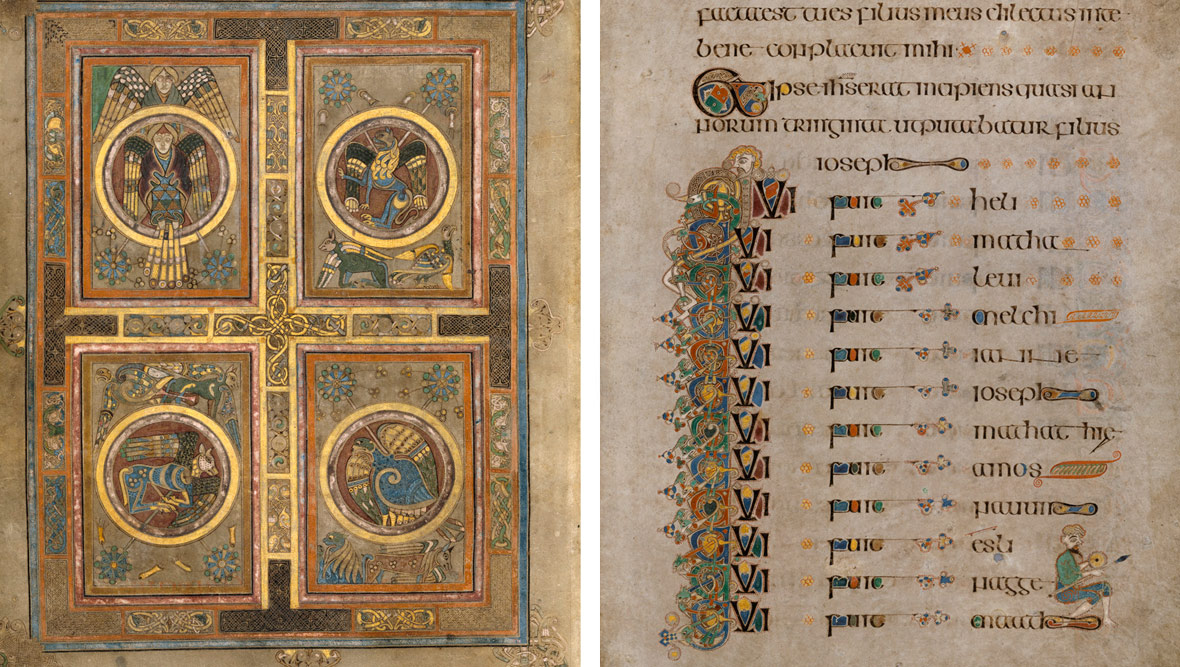 facta est tu es filius meus dilectus in te
bene conplacuit mihi
Et ipse ihs erat incipiens quasi an
norum triginta ut putabatur filius
ioseph
QVI fuit heli
QVI fuit matha
QVI fuit leui
QVI fuit melchi
QVI fuit ianne
QVI fuit ioseph
QVI fuit mathathie
QVI fuit amos
QVI fuit nauum
QVI fuit esli
QVI fuit nagge
QVI fuit maath